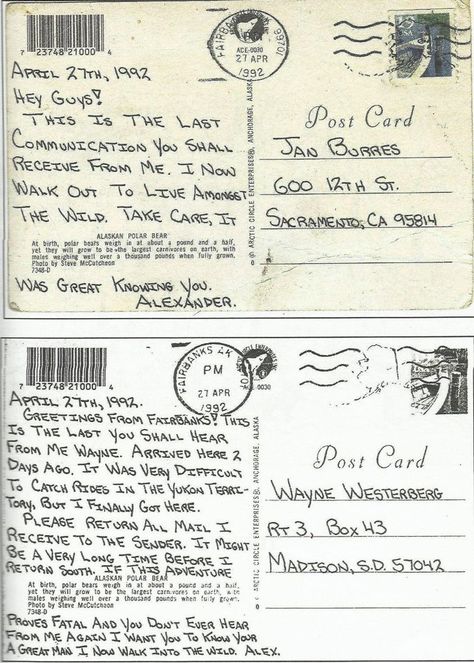 7 23748 21000 4
FAIRBANKS
PM
27 APR
1992
ACE-0030
APRIL 27TH, 1992
HEY GUYS!
THIS IS THE LAST
COMMUNICATION YOU SHALL
RECEIVE FROM ME. I NOW
WALK OUT TO LIVE AMONGST
THE WILD. TAKE CARE, IT
ALASKAN POLAR BEAR
At birth, polar bears weigh in at about a pound and a half,
yet they will grow to be the largest carnivores on earth, with
males weighing well over a thousand pounds when fully grown.
Photo by Steve McCutcheon
7348-D
WAS GREAT KNOWING YOU.
ALEXANDER.
© ARCTIC CIRCLE ENTERPRISES®, ANCHORAGE, ALASKA
USA
Post Card
JAN BURRES
600 12TH ST.
SACRAMENTO, CA 95814
7 23748 21000 4
FAIRBANKS AK
PM
27 APR
1992
APRIL 27TH, 1992.
GREETINGS FROM FAIRBANKS! THIS
IS THE LAST YOU SHALL HEAR
FROM ME WAYNE. ARRIVED HERE 2
DAYS AGO. IT WAS VERY DIFFICULT
TO CATCH RIDES IN THE YUKON TERRI-
TORY, BUT I FINALLY GOT HERE.
PLEASE RETURN ALL MAIL I
RECEIVE TO THE SENDER. IT MIGHT
BE A VERY LONG TIME BEFORE I
RETURN SOUTH. IF THIS ADVENTURE
ALASKAN POLAR BEAR
At birth, polar bears weigh in at about a pound and a half,
yet they will grow to be the largest carnivores on earth, with
males weighing well over a thousand pounds when fully grown.
Photo by Steve McCutcheon
7348-D
PROVES FATAL AND YOU DON'T EVER HEAR
FROM ME AGAIN I WANT YOU TO KNOW YOUR
A GREAT MAN I, NOW WALK INTO THE WILD. ALEX.
© ARCTIC CIRCLE ENTERPRISES®, ANCHORAGE, ALASKA
Post Card
WAYNE WESTERBERG
RT 3, BOX 43
MADISON, S.D. 57042